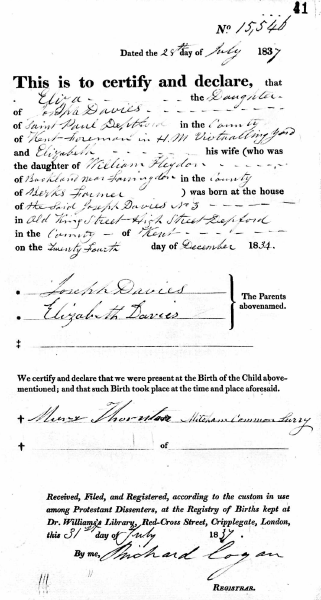 41
No. 15,546
Dated the 28th day of July 1837
This is to certify and declare, that
Eliza the Daughter
of Joseph Davies
of Saint Paul Deptford in the County
of Kent Foreman in H.M. Victualling Yard
and Elizabeth his wife (who was
the daughter of William Heydon
of Buckland near Farringdon in the County
of Berks Farmer ) was born at the house
of the said Joseph Davies No 3
in Old King Street High Street Depford
in the County of Kent
on the Twenty Fourth day of December 1834.
Joseph Davies
Elizabeth Davies
The Parents
abovenamed.
‡
We certify and declare that we were present at the Birth of the Child above-
mentioned; and that such Birth took place at the time and place aforesaid.
† Mitcham Common Surry
† of
Received, Filed, and Registered, according to the custom in use
among Protestant Dissenters, at the Registry of Births kept at
Dr. Williams's Library, Red-Cross Street, Cripplegate, London,
this 31st day of July 1837.
By me, Richard Cogan
Registrar.